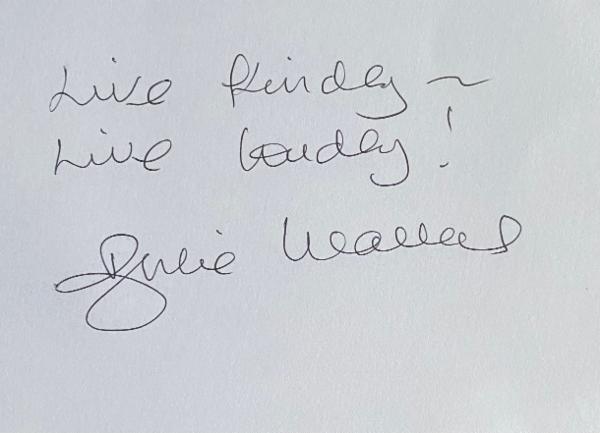 Live kindly ~
Live loudly!
Julie Wallace